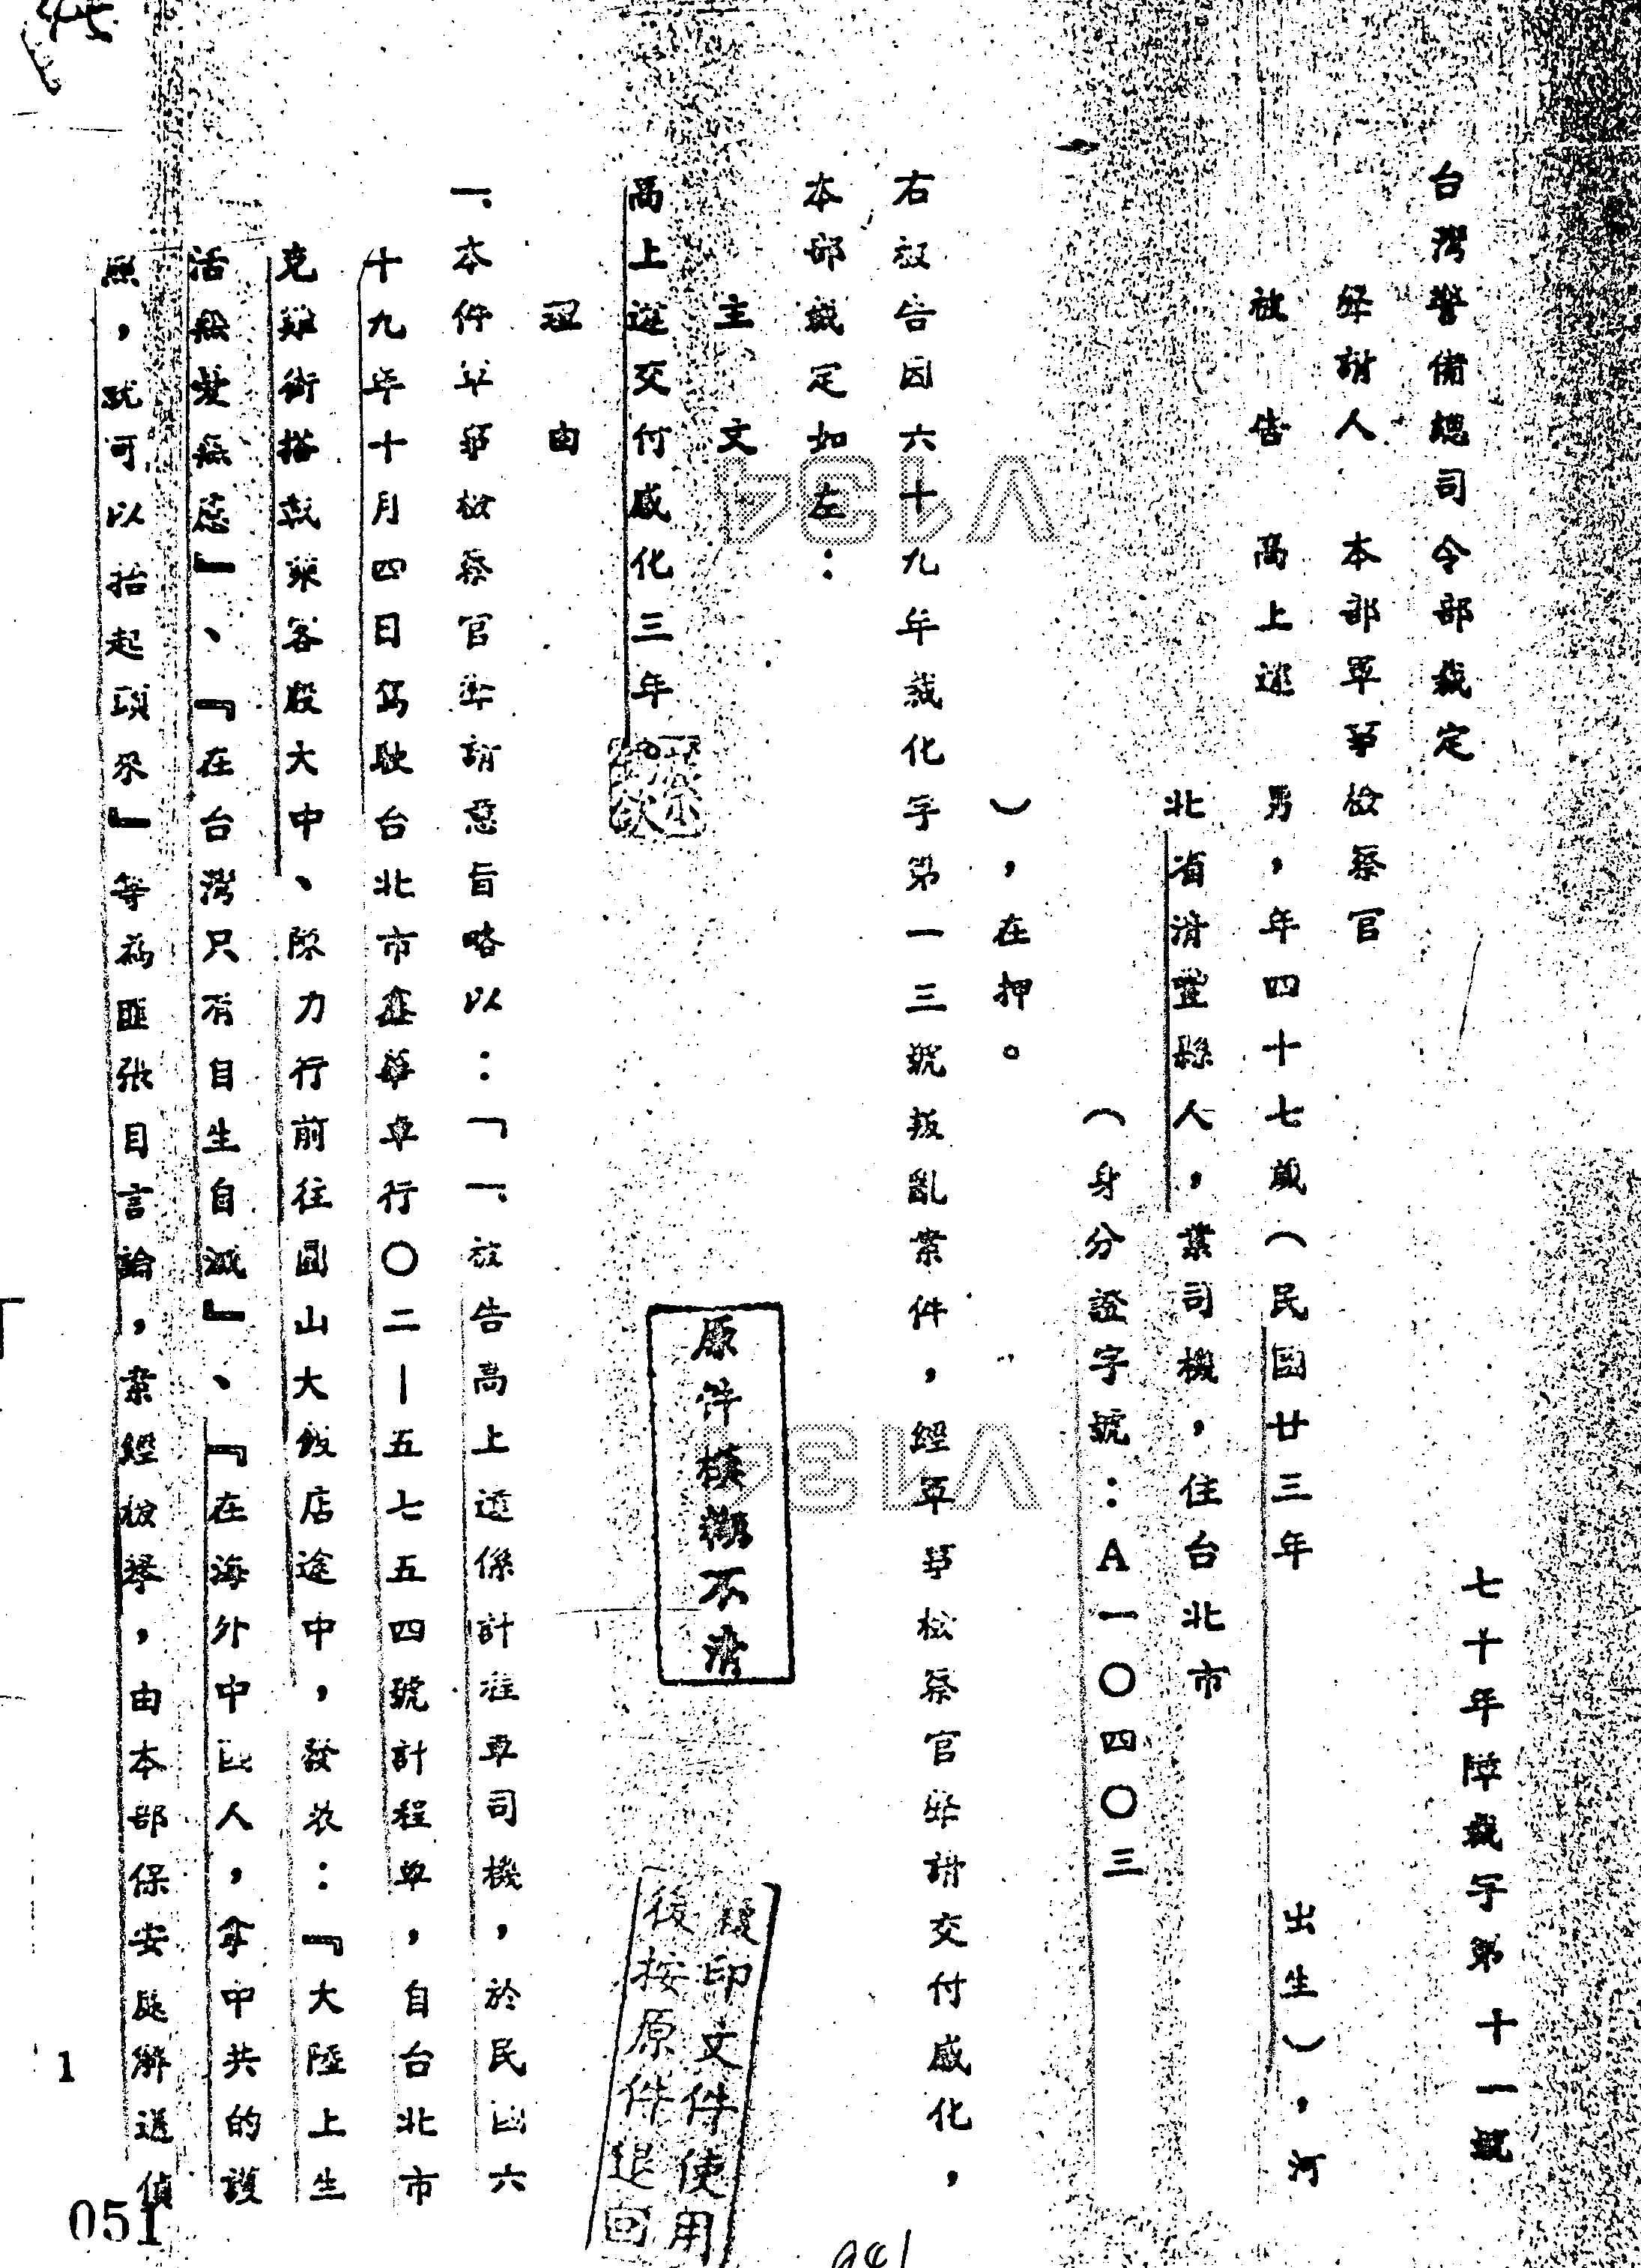 台灣警備總司令部裁定
七十年障裁字第十一號
聲請人　本部軍事檢察官
被告　高上遊　男，年四十七歲（民國廿三年　出生），河
北省清豐縣人，業司機，住台北市
（身分證字號：A一〇四〇三
），在押。
右被告因六十九年裁化字第一三號叛亂案件，經軍事檢察官聲請交付感化，
本部裁定如左：
主文
高上遊交付感化三年。
理由
一、本件軍事檢察官聲請意旨略以：「一、被告高上遊係計程車司機，於民國六
十九年十月四日駕駛台北市鑫華車行〇二—五七五四號計程車，自台北市
克難街搭載乘客段大中、陳力行前往圓山大飯店途中，發表：『大陸上生
活無憂無慮』、『在台灣只有自生自滅』、『在海外中國人，拿中共的護
照，就可以抬起頭來』等為匪張目言論，案經檢舉，由本部保安處解送偵
原件模糊不清
複印文件使用
後按原件退回
V134
V134
1
051